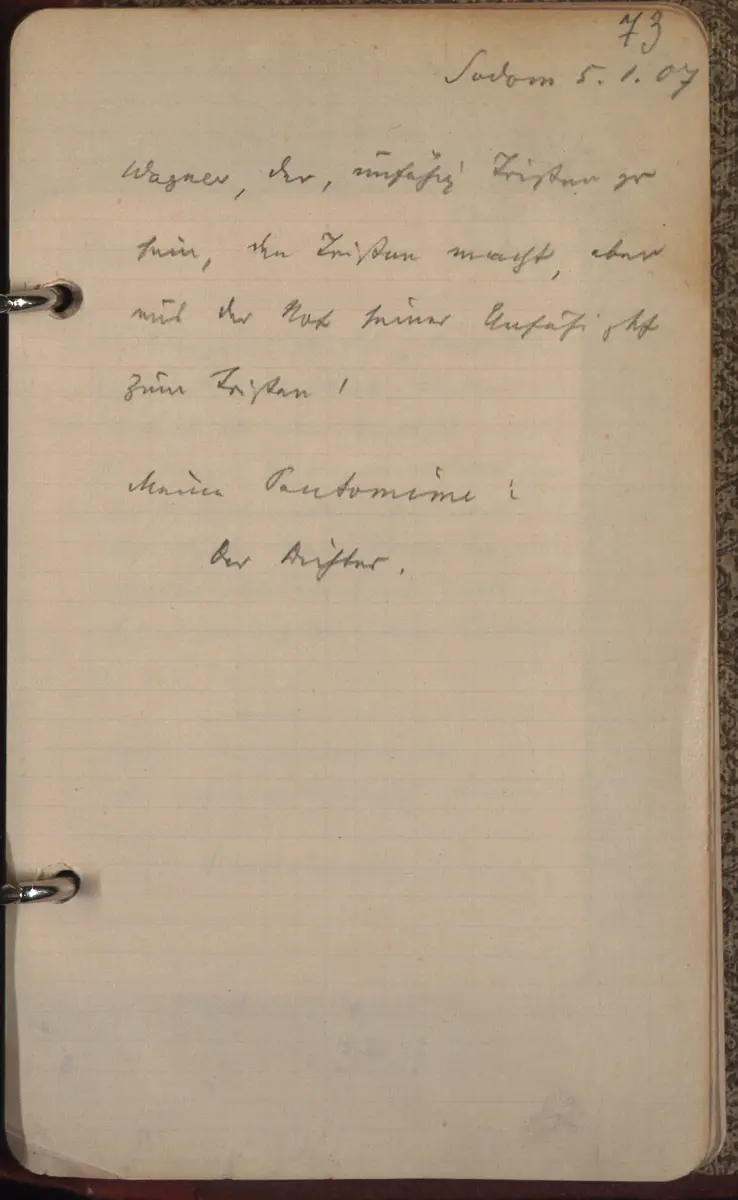 73
Sodom 5. 1. 07
Wagner, der, unfähig Tristan zu
sein, den Tristan macht, aber
aus der Not seiner Unfähigkt
zum Tristan!
Meine Pantomime:
Der Dichter.